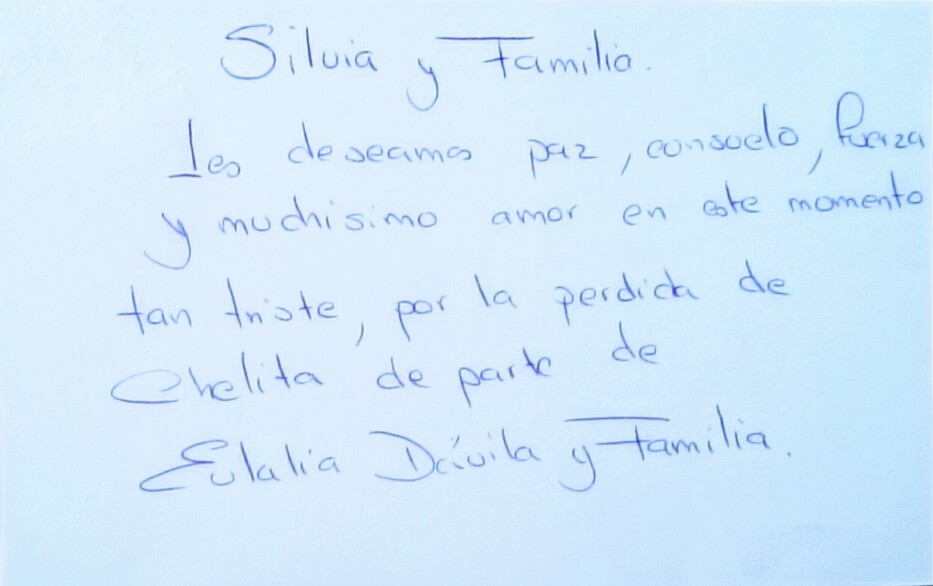 Silvia y Familia.
Les deseamos paz, consuelo, fuerza
y muchisimo amor en este momento
tan triste, por la perdida de
Chelita de parte de
Eulalia Dávila y Familia.